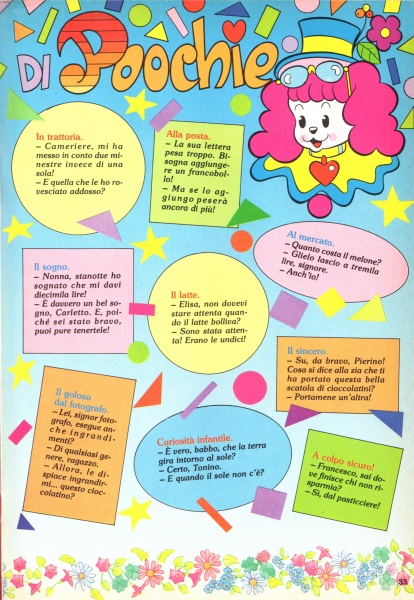 DI Poochie
In trattoria.
– Cameriere, mi ha
messo in conto due mi-
nestre invece di una
sola!
– E quella che le ho ro-
vesciato addosso?
Alla posta.
– La sua lettera
pesa troppo. Bi-
sogna aggiunge-
re un francobol-
lo!
– Ma se lo ag-
giungo peserà
ancora di più!
Al mercato.
– Quanto costa il melone?
– Glielo lascio a tremila
lire, signore.
– Anch'io!
Il sogno.
– Nonna, stanotte ho
sognato che mi davi
diecimila lire!
– È davvero un bel so-
gno, Carletto. E, poi-
ché sei stato bravo,
puoi pure tenertele!
Il latte.
– Elisa, non dovevi
stare attenta quan-
do il latte bolliva?
– Sono stata atten-
ta! Erano le undici!
Il sincero.
– Su, da bravo, Pierino!
Cosa si dice alla zia che ti
ha portato questa bella
scatola di cioccolatini?
– Portamene un'altra!
Il goloso
dal fotografo.
– Lei, signor foto-
grafo, esegue an-
che ingrandi-
menti?
– Di qualsiasi ge-
nere, ragazzo.
– Allora, le di-
spiace ingrandir-
mi... questo cioc-
colatino?
Curiosità infantile.
– È vero, babbo, che la terra
gira intorno al sole?
– Certo, Tonino.
– E quando il sole non c'è?
A colpo sicuro!
– Francesco, sai do-
ve finisce chi non ri-
sparmia?
– Sì, dal pasticciere!
33